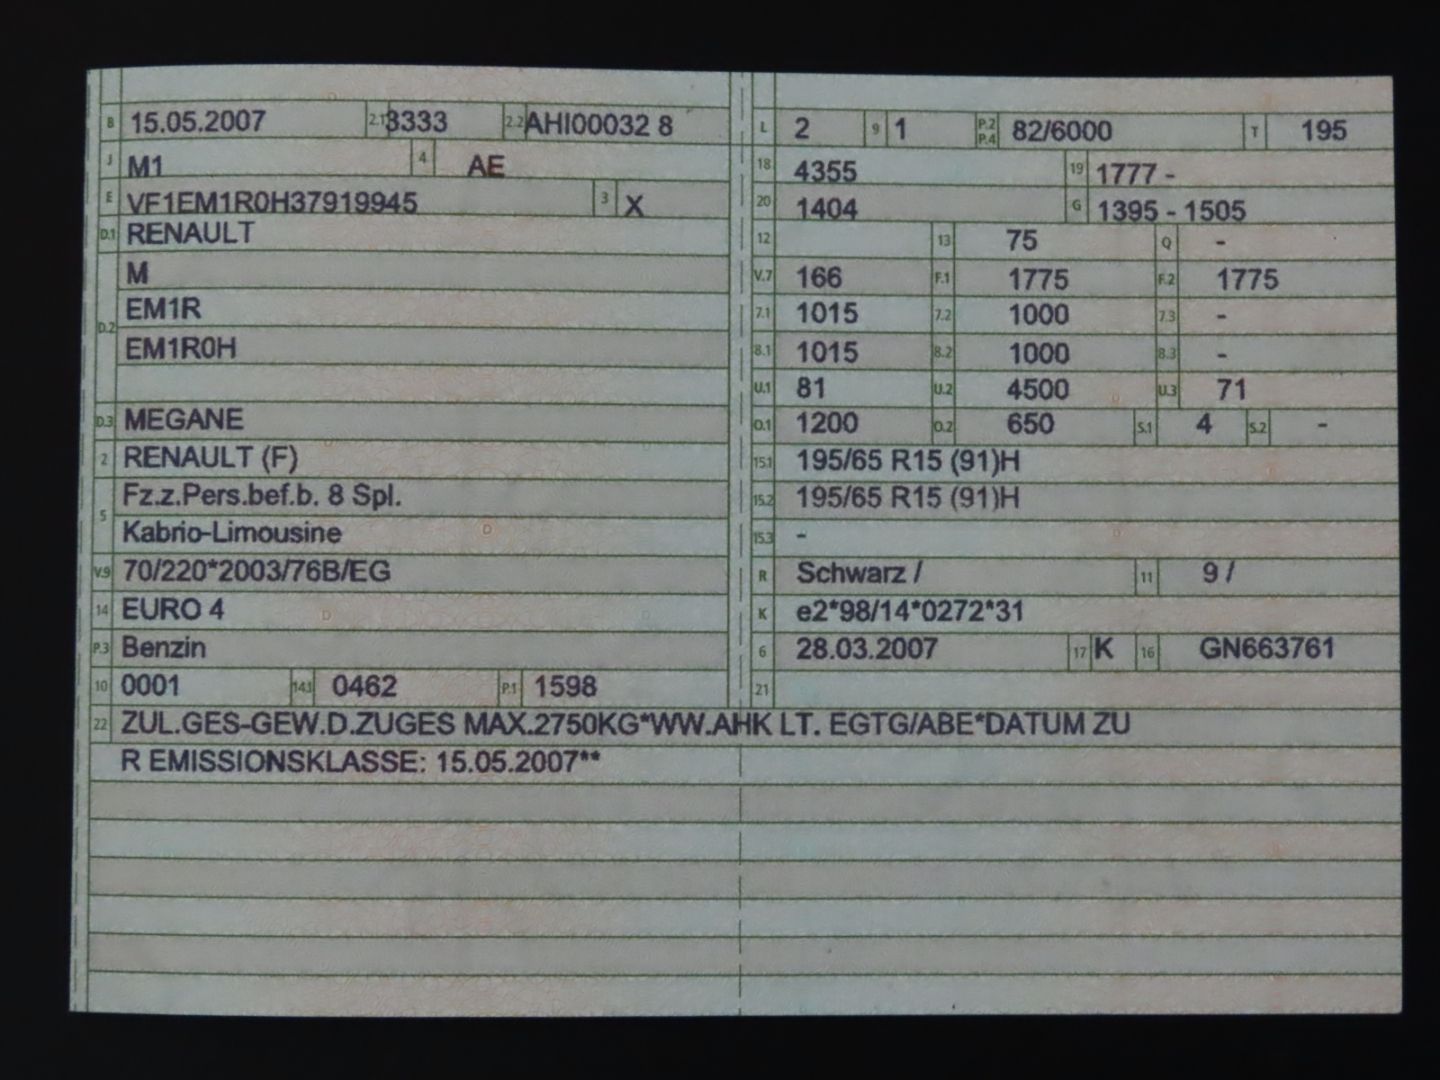 B 15.05.2007 2.1 3333 2.2 AHI00032 8
J M1 4 AE
E VF1EM1R0H37919945 3 X
D.1 RENAULT
M
D.2 EM1R
EM1R0H
D.3 MEGANE
2 RENAULT (F)
5 Fz.z.Pers.bef.b. 8 Spl.
Kabrio-Limousine
V.9 70/220*2003/76B/EG
14 EURO 4
P.3 Benzin
10 0001 14.1 0462 P.1 1598
L 2 9 1 P.2 P.4 82/6000 T 195
18 4355 19 1777 -
20 1404 G 1395 - 1505
12 13 75 Q -
V.7 166 F.1 1775 F.2 1775
7.1 1015 7.2 1000 7.3 -
8.1 1015 8.2 1000 8.3 -
U.1 81 U.2 4500 U.3 71
O.1 1200 O.2 650 S.1 4 S.2 -
15.1 195/65 R15 (91)H
15.2 195/65 R15 (91)H
15.3 -
R Schwarz / 11 9 /
K e2*98/14*0272*31
6 28.03.2007 17 K 16 GN663761
21
22 ZUL.GES-GEW.D.ZUGES MAX.2750KG*WW.AHK LT. EGTG/ABE*DATUM ZU
R EMISSIONSKLASSE: 15.05.2007**